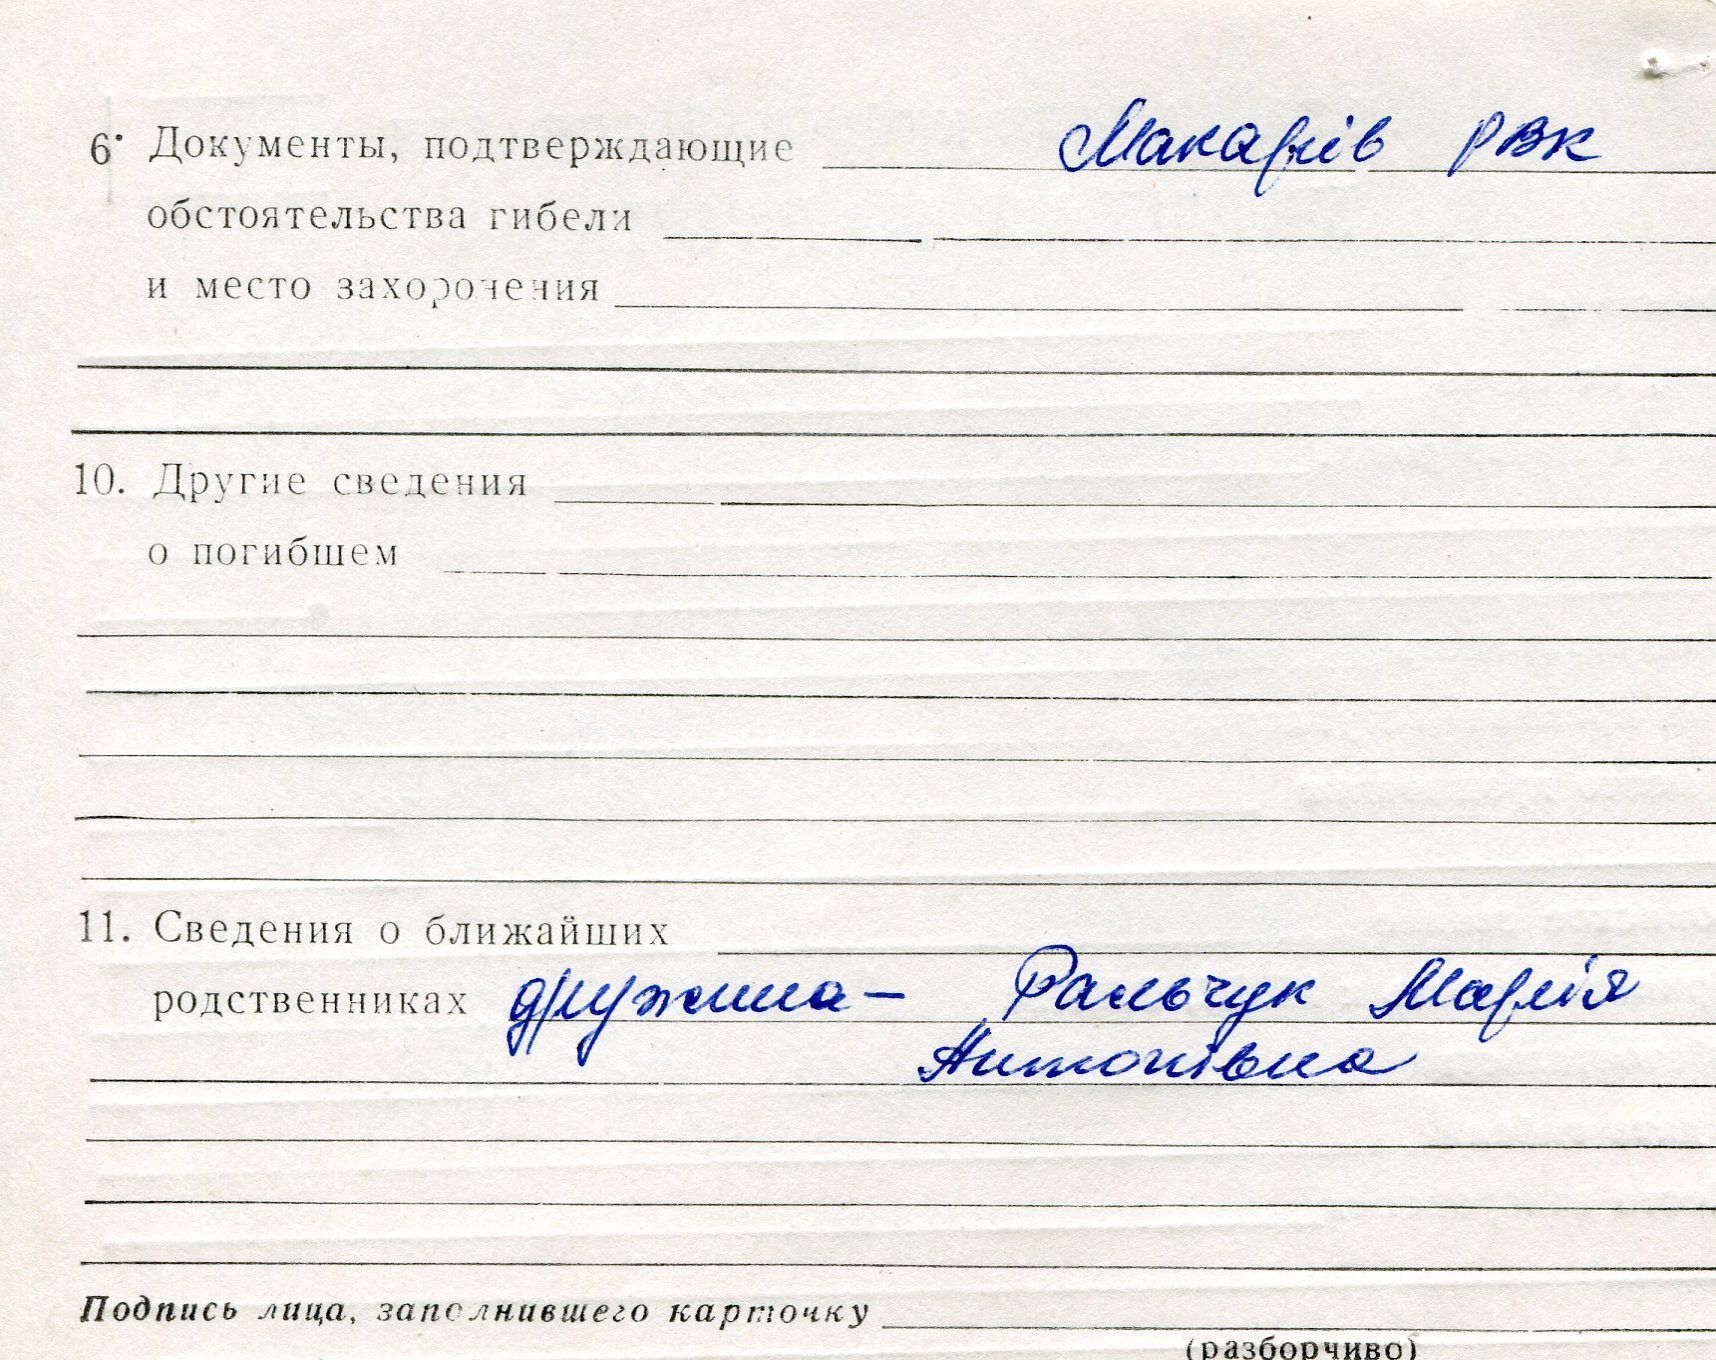 6. Документы, подтверждающие Макарів РВК
обстоятельства гибели
и место захоронения
10. Другие сведения
о погибшем
11. Сведения о ближайших
родственниках дружина - Ральчук Марія
Антонівна
Подпись лица, заполнившего карточку
(разборчиво)